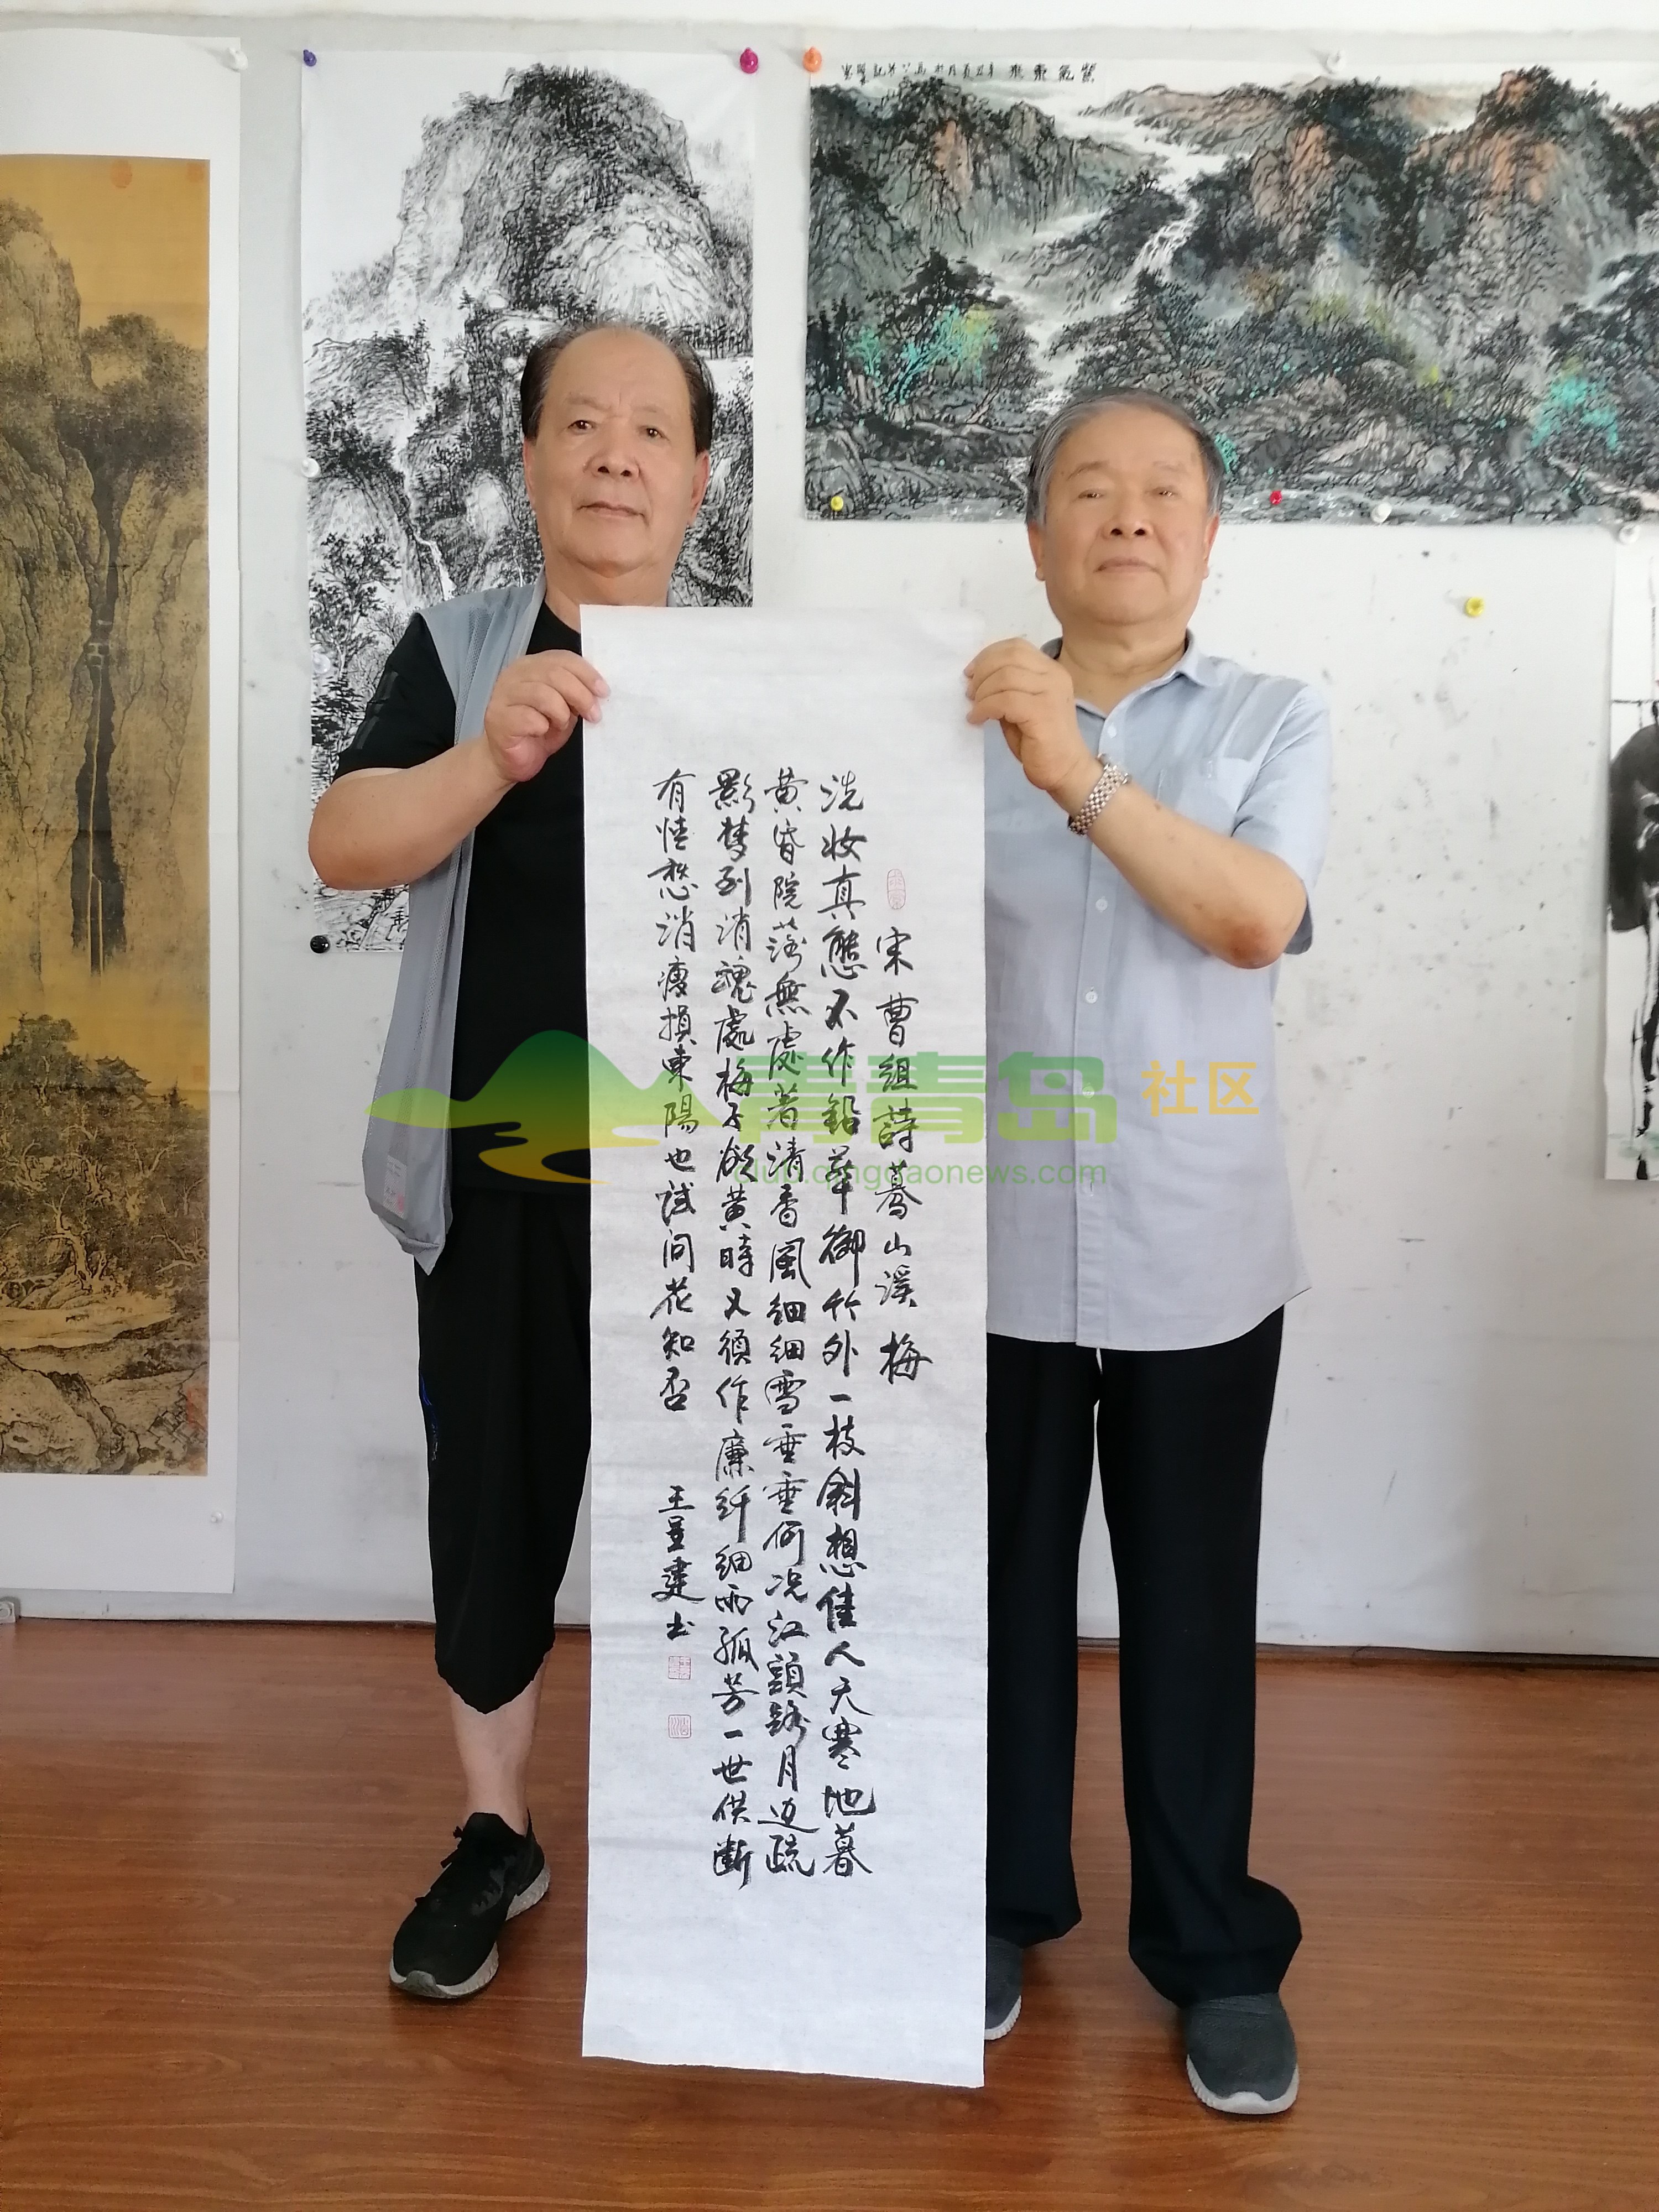 宋曹組詩蓦山溪 梅
洗妆真態不作鉛华御竹外一枝斜想佳人天寒地暮
黄昏院落無處著清香風細細雪垂垂何况江頭路月边疏
影梦到消魂處梅子欲黄時又須作廉纤细雨孤芳一世供断
有情愁消瘦損東陽也試问花知否
王星建书
青青岛 社区
club.qingdaonews.com